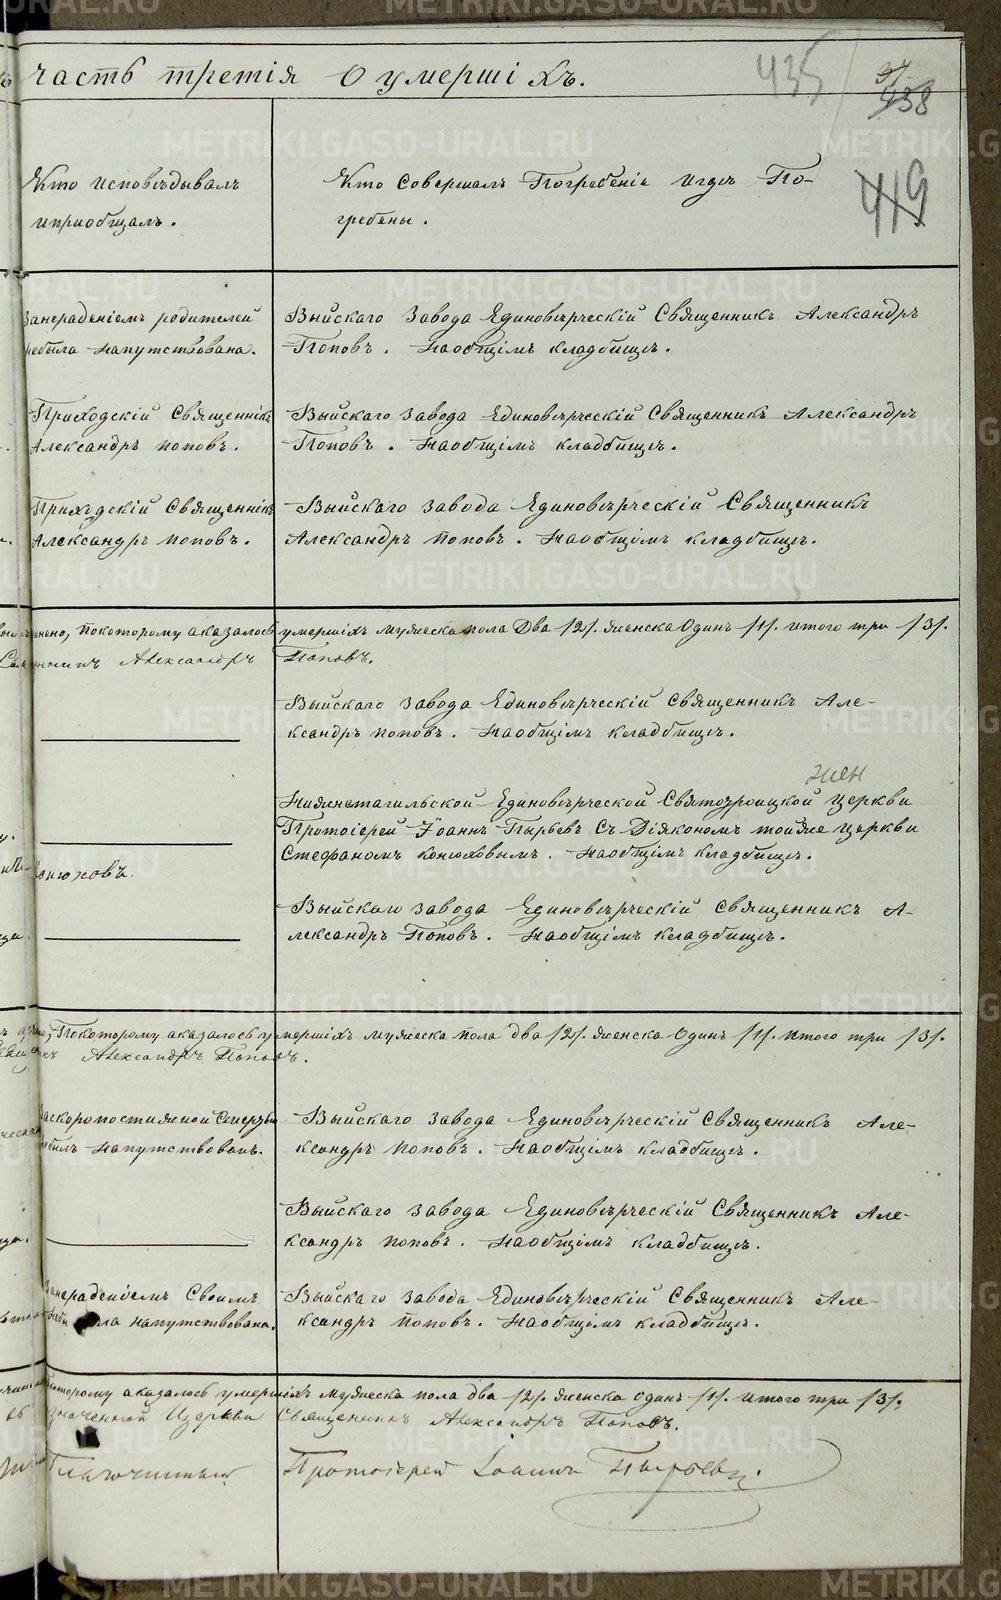 часть третія о умершихъ.
435
37
438
419
Кто исповѣдывалъ
и приобщалъ.
Кто Совершалъ Погребеніе и гдѣ По-
гребены.
За нераденіемъ родителей
небыла напутствована.
Выйскаго Завода Единовѣрческій Священникъ Александръ
Поповъ. На общемъ кладбищѣ.
Приходскій Священникъ
Александръ Поповъ.
Выйскаго завода Единовѣрческій Священникъ Александръ
Поповъ. На общемъ кладбищѣ.
Приходскій Священникъ
Александръ Поповъ.
Выйскаго завода Единовѣрческій Священникъ
Александръ Поповъ. На общемъ кладбищѣ.
по которому аказалось умершихъ мужеска пола Два /2/. женска Одинъ /1/. итого три /3/.
Александръ Поповъ.
Выйскаго завода Единовѣрческій Священникъ Але-
ксандръ Поповъ. На общемъ кладбищѣ.
жен
Нижнетагильской Единовѣрческой Святотроицкой церкви
Протоіерей Іоаннъ Пырьевъ Съ Діякономъ тойже церкви
Стефаномъ Конюховымъ. На общемъ кладбищѣ.
Конюховъ.
Выйскаго завода Единовѣрческій Священникъ А-
лександръ Поповъ. На общемъ кладбищѣ.
По которому аказалось умершихъ мужеска пола два /2/. женска Одинъ /1/. итого три /3/.
Александръ Поповъ.
За скоропостижной Смертью
небылъ напутствованъ.
Выйскаго завода Единовѣрческій Священникъ Але-
ксандръ Поповъ. На общемъ кладбищѣ.
Выйскаго завода Единовѣрческій Священникъ Але-
ксандръ Поповъ. На общемъ кладбищѣ.
За нераденіемъ Своимъ
напутствована.
Выйскаго завода Единовѣрческій Священникъ Але-
ксандръ Поповъ. На общемъ кладбищѣ.
которому аказалось умершихъ мужеска пола два /2/. женска Одинъ /1/. итого три /3/.
значенной Церкви Священникъ Александръ Поповъ.
Благочинный Протоіерей Іоаннъ Пырьевъ.
METRIKI.GASO-URAL.RU